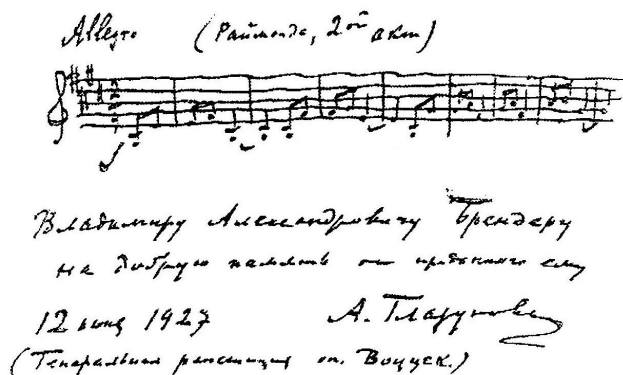 Allegro (Раймонда, 2ой акт)
Владимиру Александровичу Брендеру
на добрую память от преданного ему
12 июня 1927 А. Глазунова
(Генеральная репетиция оп.